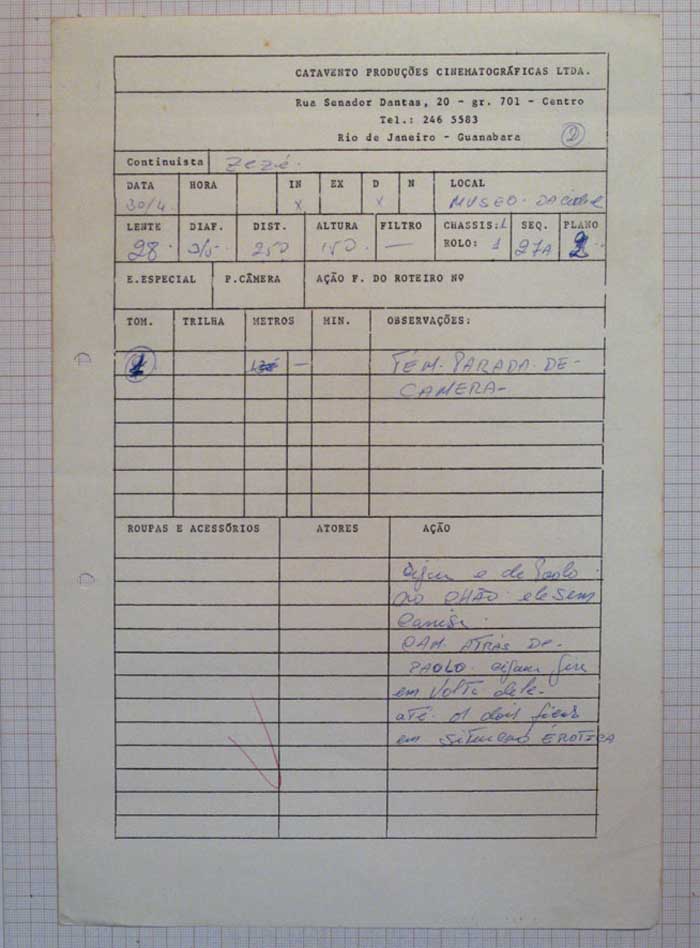 CATAVENTO PRODUÇÕES CINEMATOGRÁFICAS LTDA.
Rua Senador Dantas, 20 - gr. 701 - Centro
Tel.: 246 5583
Rio de Janeiro - Guanabara 2
Continuista Zezé.
DATA HORA IN EX D N LOCAL
30/4. X X MUSEO. DA cidade
LENTE DIAF. DIST. ALTURA FILTRO CHASSIS: 1 SEQ. PLANO
28. 250 150 — ROLO: 1 27A 2
E.ESPECIAL P.CÂMERA AÇÃO F. DO ROTEIRO Nº
TOM. TRILHA METROS MIN. OBSERVAÇÕES:
1 — TÉM. PARADA. DE-
CAMERA-
ROUPAS E ACESSÓRIOS ATORES AÇÃO
e de Paolo.
no CHÃO. ele sem
Camisa.
CAM. ATRÁS DE-
PAOLO.
em volta dele.
até. os dois
em situação ÉROTICA